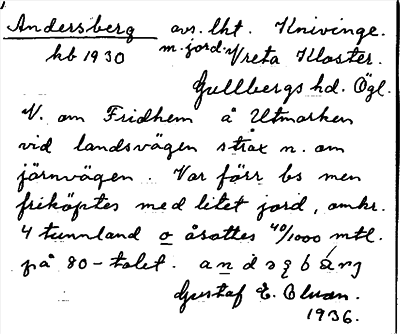 Andersberg avs. lht. Knivinge.
kb 1930 m. jord. Vreta Kloster.
Gullbergs hd. Ögl.
V. om Fridhem å Utmarken
vid landsvägen strax n. om
järnvägen. Var förr bs men
friköptes med litet jord, omkr.
4 tunnland o åsattes 40/1000 mtl.
på 80-talet.
Gustaf E. Olsson.
1936.